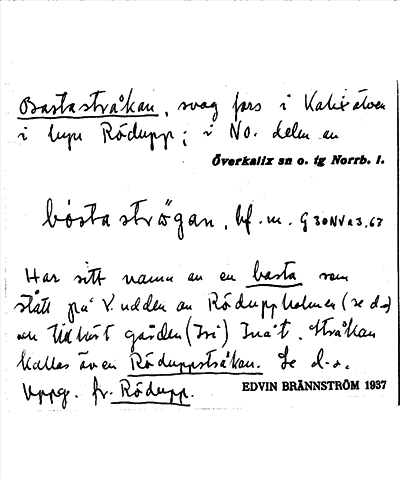 Bastastråkan, svag fors i Kalixälven
i byn Rödupp; i NO. delen av
Överkalix sn o. tg Norrb. l.
bf. m.
Har sitt namn av en basta som
stått på V. udden av Röduppholmen (se d.o)
och tillhört gården
kallas även Röduppstråkan. Se d.o.
Uppg. fr. Rödupp.
EDVIN BRÄNNSTRÖM 1937